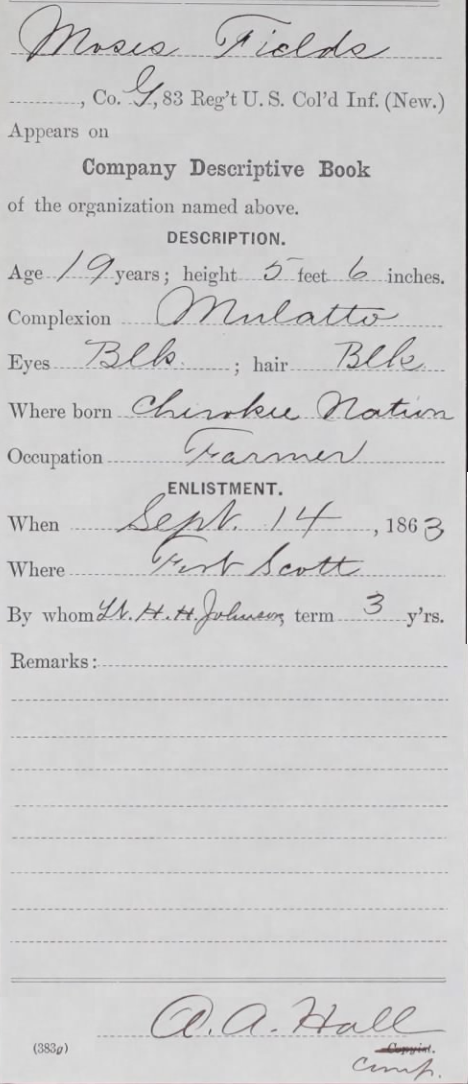 Moses Fields
, Co. G, 83 Reg't U. S. Col'd Inf. (New.)
Appears on
Company Descriptive Book
of the organization named above.
DESCRIPTION.
Age 19 years; height 5 feet 6 inches.
Complexion Mulatto
Eyes Blk ; hair Blk
Where born Cherokee Nation
Occupation Farmer
ENLISTMENT.
When Sept. 14, 1863
Where Fort Scott
By whom Lt. H. H. Johnson, term 3 y'rs.
Remarks:
A. A. Hall
(383g) Copyist.
Comp.